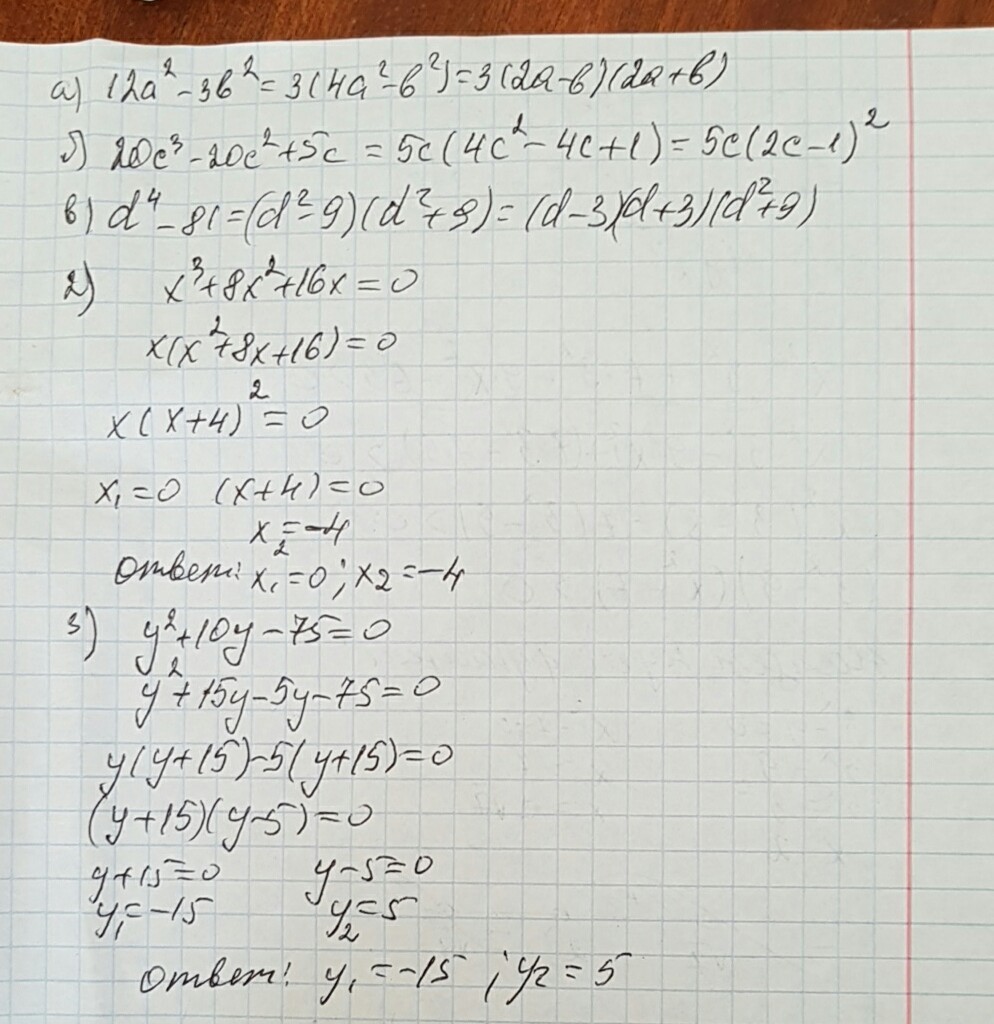 а) 12a² - 3b² = 3(4a² - b²) = 3(2a - b)(2a + b)
б) 20c³ - 20c² + 5c = 5c(4c² - 4c + 1) = 5c(2c - 1)²
в) d⁴ - 81 = (d² - 9)(d² + 9) = (d - 3)(d + 3)(d² + 9)
2) x³ + 8x² + 16x = 0
x(x² + 8x + 16) = 0
x(x + 4)² = 0
x₁ = 0 (x + 4) = 0
x₂ = -4
Ответ: x₁ = 0; x₂ = -4
3) y² + 10y - 75 = 0
y² + 15y - 5y - 75 = 0
y(y + 15) - 5(y + 15) = 0
(y + 15)(y - 5) = 0
y + 15 = 0 y - 5 = 0
y₁ = -15 y₂ = 5
Ответ: y₁ = -15 ; y₂ = 5